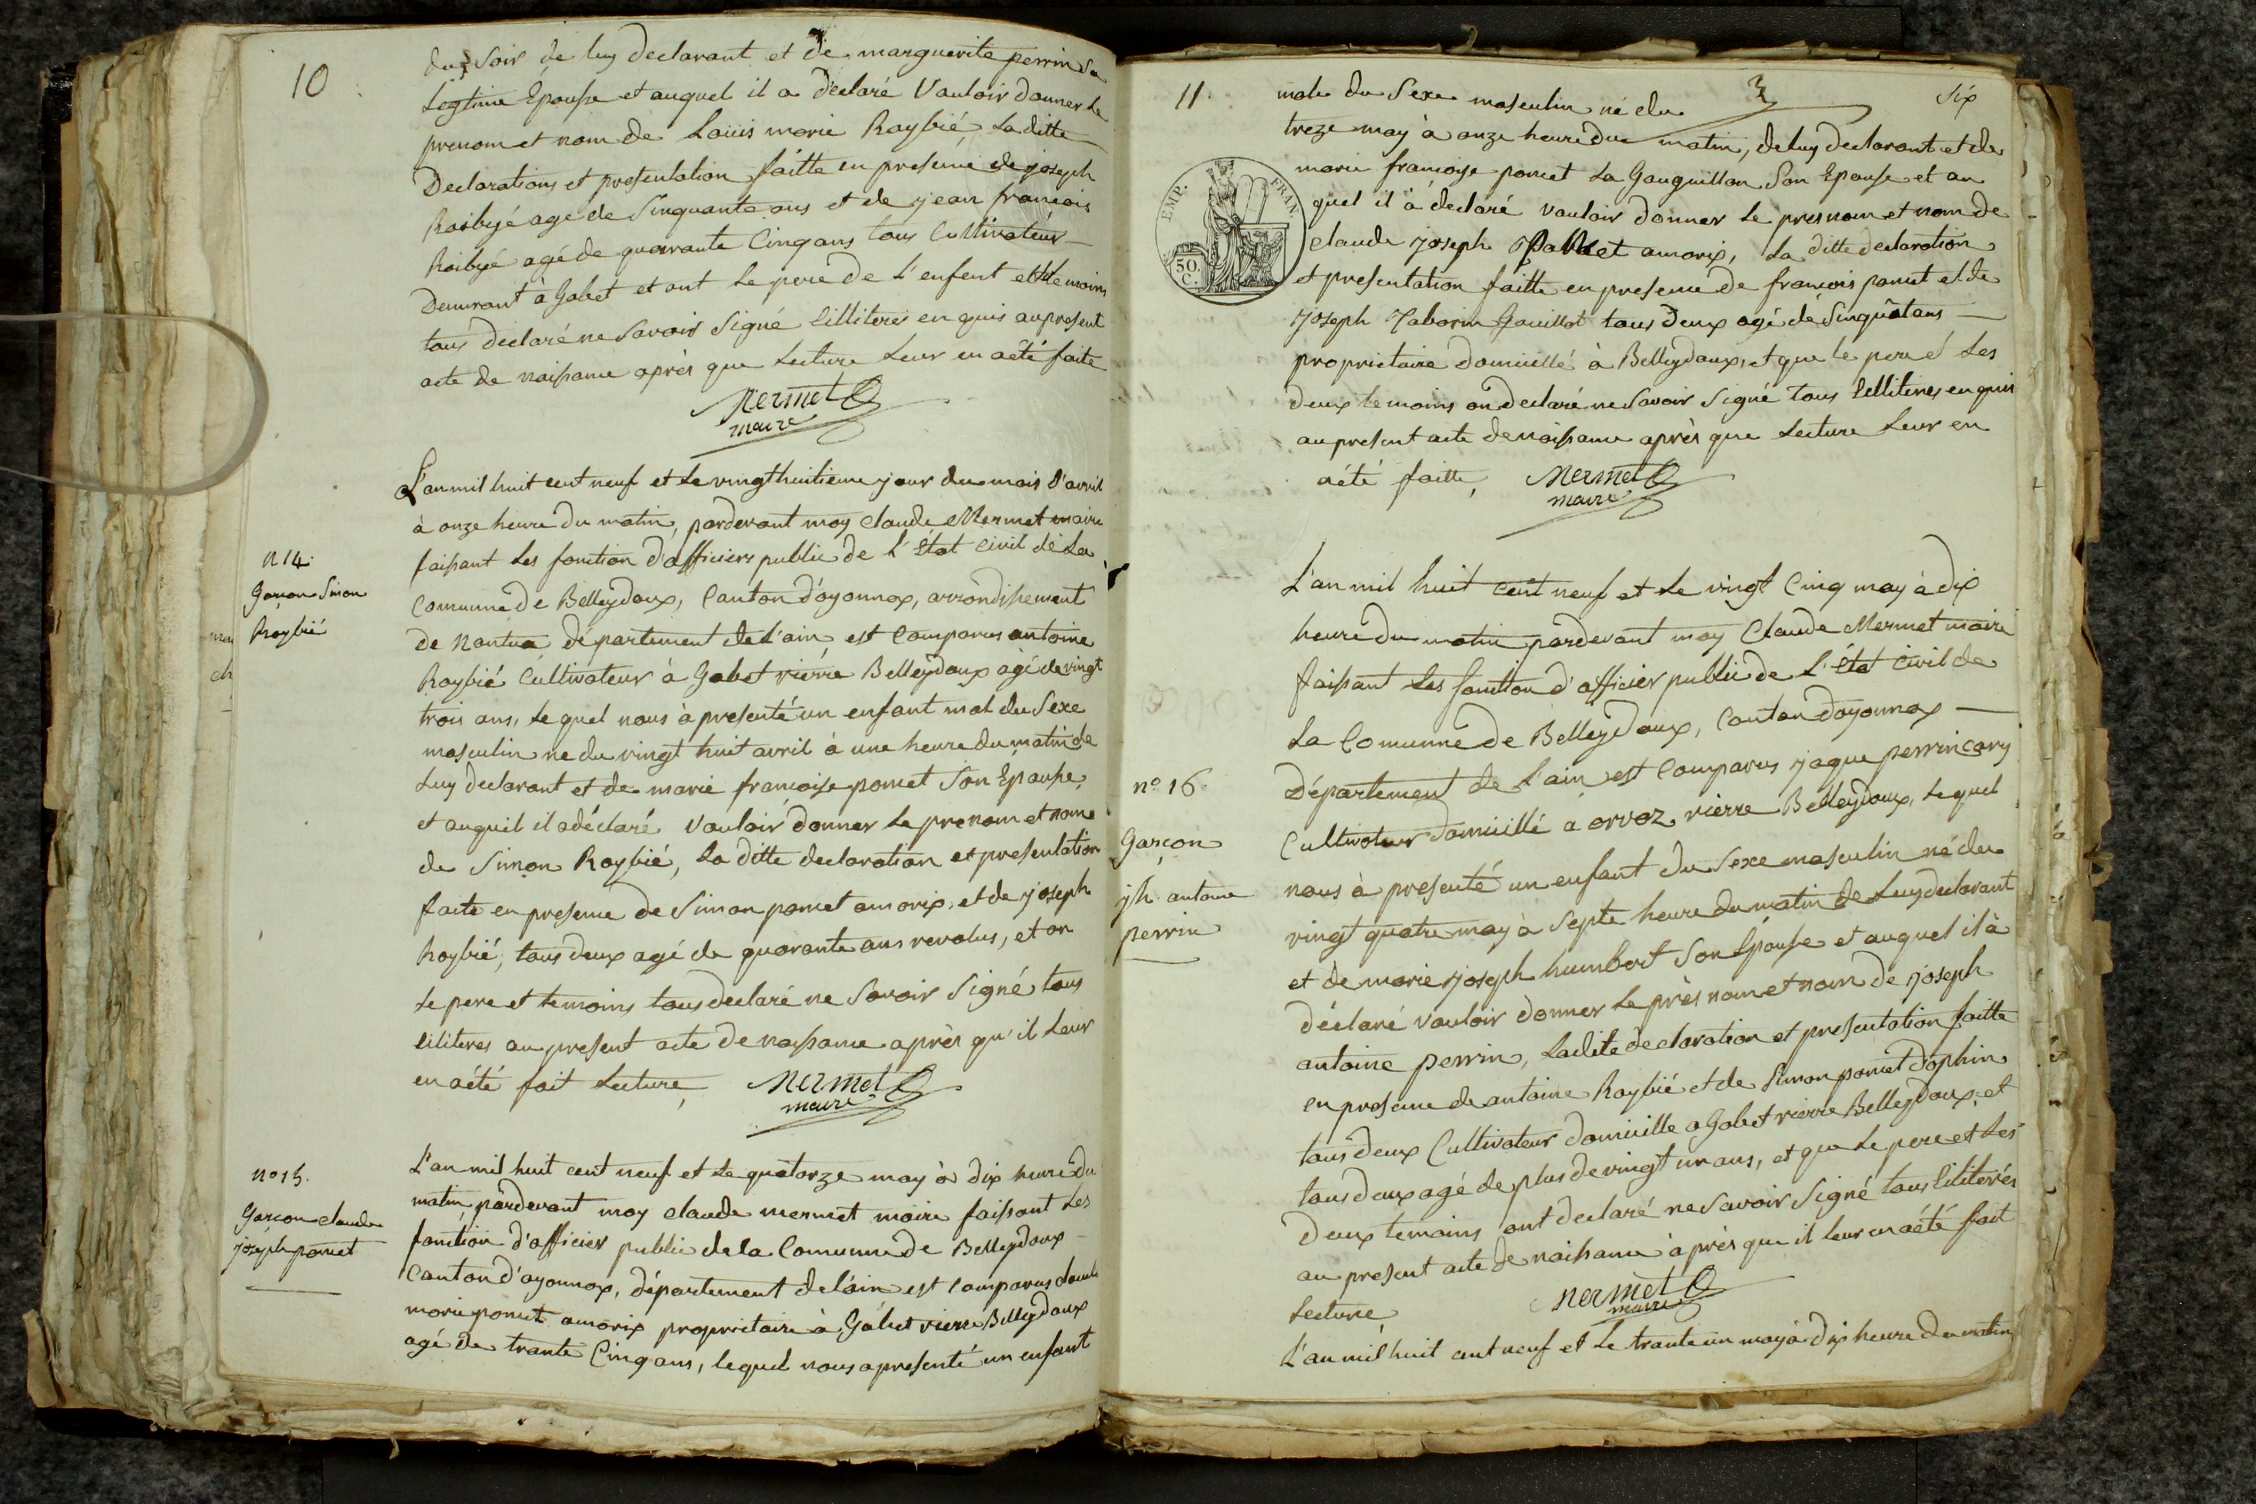 10
du Soir de luy declarant et de marguerite perrin Sa
Legtime Epouse et auquel il a déclaré Vouloir donner Le
prenom et nom de Louis marie Raybié, La ditte
Declarations et presentation faitte en presence de joseph
Raibyé agé de Sinquante ans et de jean francois
Raibyé agé de quarante Cinq ans tous Cultivateur
Demurant à Gobet et ont Le pere de L'enfent et temoins
tous declaré ne Savoir Signé Lilliteres en quis au present
acte de naissance après que Lecture Leur en a été faite
Mermet
maire
L'an mil huit cent neuf et Le vingt huitieme jour du mois d'avril
à onze heure du matin, pardevant moy Claude Mermet maire
faissant Les fonction d'officiers public de L'état Civil de La
Comunne de Belleydoux, Canton d'oyonnax, arrondissement
de Nantua département de L'ain est Comparus antoine
Raybié Cultivateur à Gobet rierre Belleydoux agé de vingt
trois ans, Le quel nous à presenté un enfant mal du Sexe
masculin ne du vingt huit avril à une heure du matin de
Luy declarant et de marie francoise poncet Son Epouse,
et auquil il a déclaré Vouloir donner Le prenom et nom
de Simon Raybié, La ditte declaration et presentation
faite en presence de Simon poncet amorix, et de joseph
Raybié, tous deux agé de quarante ans revolus, et on
Le pere et temoins tous declaré ne Savoir Signé tous
Liliteres au present acte de naissance après qu'il Leur
en a été fait Lecture,
Mermet
maire
n 14.
Garcon Simon
Raybié
L'an mil huit cent neuf et Le quatorze may à dix heure du
matin, pardevant moy Claude mermet maire faissant Les
fonction d'officier public de la Comunne de Belleydoux
Canton d'oyonnax, département de l'ain est Comparus Claude
marie poncet amorix proprietaire à Gobet rierre Belleydoux
agé de trante Cinq ans, lequel nous a presenté un enfant
no 15.
Garcon Claude
joseph poncet
11.
Six
male du Sexe masculin né du
treze may à onze heure du matin, de luy declarant et de
marie francoise poncet La Gauguillon Son Epouse et au
quel il à declaré vouloir donner Le presnom et nom de
Claude joseph Poncet amorix, La ditte declaration
et presentation faitte en presence de francois poncet et de
joseph Taborin Gouillot tous deux agé de Sinquat ans
proprietaire domicillé à Belleydoux, et que le pere et Les
deux temoins on declaré ne Savoir Signé tous Lelliteres en quis
au present acte de naissance après que Lecture Leur en
a été faitte,
Mermet
maire
EMP. FRAN.
50. C.
L'an mil huit cent neuf et Le vingt Cinq may à dix
heure du matin pardevant moy Claude Mermet maire
faissant Les fonction d'officier public de L'état Civil de
La Comunne de Belleydoux, Canton d'oyonnax
Département de L'ain est Comparus jaque perrin cary
Cultivateur domicillé à orvoz, rierre Belleydoux, Le quel
nous à presenté un enfant du Sexe masculin né du
vingt quatre may à Septe heure du matin de Luy declarant
et de marie joseph humbert Son Epouse et auquel il à
déclaré vouloir donner Le près nom et nom de joseph
antoine perrin, Ladite declaration et presentation faitte
en presence de antoine Raybié et de Simon poncet dophin
tous deux Cultivateur domicille a Gobet rierre Belleydoux, et
tous deux agé de plus de vingt un ans, et que Le pere et Les
Deux temoins ont declaré ne Savoir Signé tous Liliterés
au present acte de naissance après que il leur en a été fait
Lecture
Mermet
maire
no 16.
Garçon
jh antoine
perrin
L'an mil huit cent neuf et Le trante un may à dix heure du matin